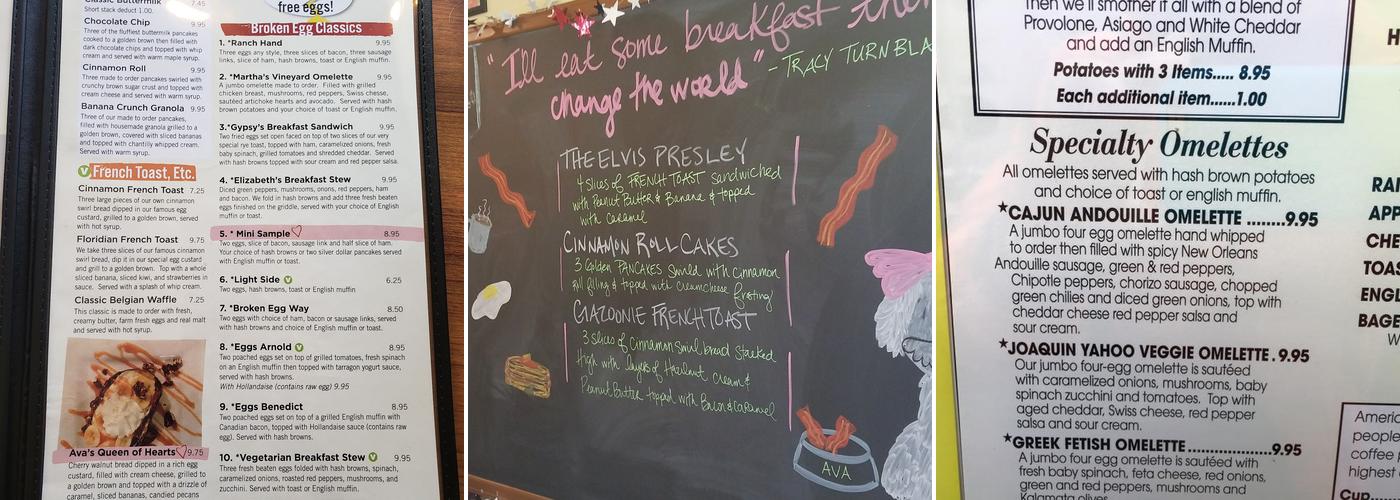 Classic Buttermilk 7.45
Short stack deduct 1.00.
Chocolate Chip 9.95
Three of the fluffiest buttermilk pancakes
cooked to a golden brown then filled with
dark chocolate chips and topped with whip
cream and served with warm maple syrup.
Cinnamon Roll 9.95
Three made to order pancakes swirled with
crunchy brown sugar crust and topped with
cream cheese and served with warm syrup.
Banana Crunch Granola 9.95
Three of our made to order pancakes,
filled with housemade granola grilled to a
golden brown, covered with sliced bananas
and topped with chantilly whipped cream.
Served with warm syrup.
French Toast, Etc.
Cinnamon French Toast 7.25
Three large pieces of our own cinnamon
swirl bread dipped in our famous egg
custard, grilled to a golden brown, served
with hot syrup.
Floridian French Toast 9.75
We take three slices of our famous cinnamon
swirl bread, dip it in our special egg custard
and grill to a golden brown. Top with a whole
sliced banana, sliced kiwi, and strawberries in
sauce. Served with a splash of whip cream.
Classic Belgian Waffle 7.25
This classic is made to order with fresh,
creamy butter, farm fresh eggs and real malt
and served with hot syrup.
Ava's Queen of Hearts 9.75
Cherry walnut bread dipped in a rich egg
custard, filled with cream cheese, grilled to
a golden brown and topped with a drizzle of
caramel, sliced bananas, candied pecans
free eggs!
Broken Egg Classics
1. *Ranch Hand 9.95
Three eggs any style, three slices of bacon, three sausage
links, slice of ham, hash browns, toast or English muffin.
2. *Martha's Vineyard Omelette 9.95
A jumbo omelette made to order. Filled with grilled
chicken breast, mushrooms, red peppers, Swiss cheese,
sautéed artichoke hearts and avocado. Served with hash
brown potatoes and your choice of toast or English muffin.
3.*Gypsy's Breakfast Sandwich 9.95
Two fried eggs set open faced on top of two slices of our very
special rye toast, topped with ham, caramelized onions, fresh
baby spinach, grilled tomatoes and shredded cheddar. Served
with hash browns topped with sour cream and red pepper salsa.
4. *Elizabeth's Breakfast Stew 9.95
Diced green peppers, mushrooms, onions, red peppers, ham
and bacon. We fold in hash browns and add three fresh beaten
eggs finished on the griddle, served with your choice of English
muffin or toast.
5. * Mini Sample 8.95
Two eggs, slice of bacon, sausage link and half slice of ham.
Your choice of hash browns or two silver dollar pancakes served
with English muffin or toast.
6. *Light Side 6.25
Two eggs, hash browns, toast or English muffin
7. *Broken Egg Way 8.50
Two eggs with choice of ham, bacon or sausage links, served
with hash browns and choice of English muffin or toast.
8. *Eggs Arnold 8.95
Two poached eggs set on top of grilled tomatoes, fresh spinach
on an English muffin then topped with tarragon yogurt sauce,
served with hash browns.
With Hollandaise (contains raw egg) 9.95
9. *Eggs Benedict 8.95
Two poached eggs set on top of a grilled English muffin with
Canadian bacon, topped with Hollandaise sauce (contains raw
egg). Served with hash browns.
10. *Vegetarian Breakfast Stew 9.95
Three fresh beaten eggs folded with hash browns, spinach,
caramelized onions, roasted red peppers, mushrooms, and
zucchini. Served with toast or English muffin.
"I'll eat some breakfast then
change the world"
- TRACY TURNBLA
THE ELVIS PRESLEY
4 slices of FRENCH TOAST Sandwiched
with Peanut Butter & Banana & topped
with Caramel
CINNAMON ROLL CAKES
3 Golden PANCAKES Swirled with Cinnamon
roll filling & topped with creamcheese frosting
GAZOONIE FRENCH TOAST
3 slices of Cinnamon Swirl bread Stacked
High with layers of Hazelnut cream &
Peanut Butter topped with Bacon & Caramel
AVA
Then we'll smother it all with a blend of
Provolone, Asiago and White Cheddar
and add an English Muffin.
Potatoes with 3 Items..... 8.95
Each additional item......1.00
Specialty Omelettes
All omelettes served with hash brown potatoes
and choice of toast or english muffin.
★CAJUN ANDOUILLE OMELETTE ........9.95
A jumbo four egg omelette hand whipped
to order then filled with spicy New Orleans
Andouille sausage, green & red peppers,
Chipotle peppers, chorizo sausage, chopped
green chilies and diced green onions, top with
cheddar cheese red pepper salsa and
sour cream.
★JOAQUIN YAHOO VEGGIE OMELETTE . 9.95
Our jumbo four-egg omelette is sautéed
with caramelized onions, mushrooms, baby
spinach zucchini and tomatoes. Top with
aged cheddar, Swiss cheese, red pepper
salsa and sour cream.
★GREEK FETISH OMELETTE ...............9.95
A jumbo four egg omelette is sautéed with
fresh baby spinach, feta cheese, red onions,
green and red peppers, mushrooms and
Kalamata olives
H
RAI
APP
CHE
TOAS
ENGL
BAGE
W
Americ
people
coffee
highest
Cup